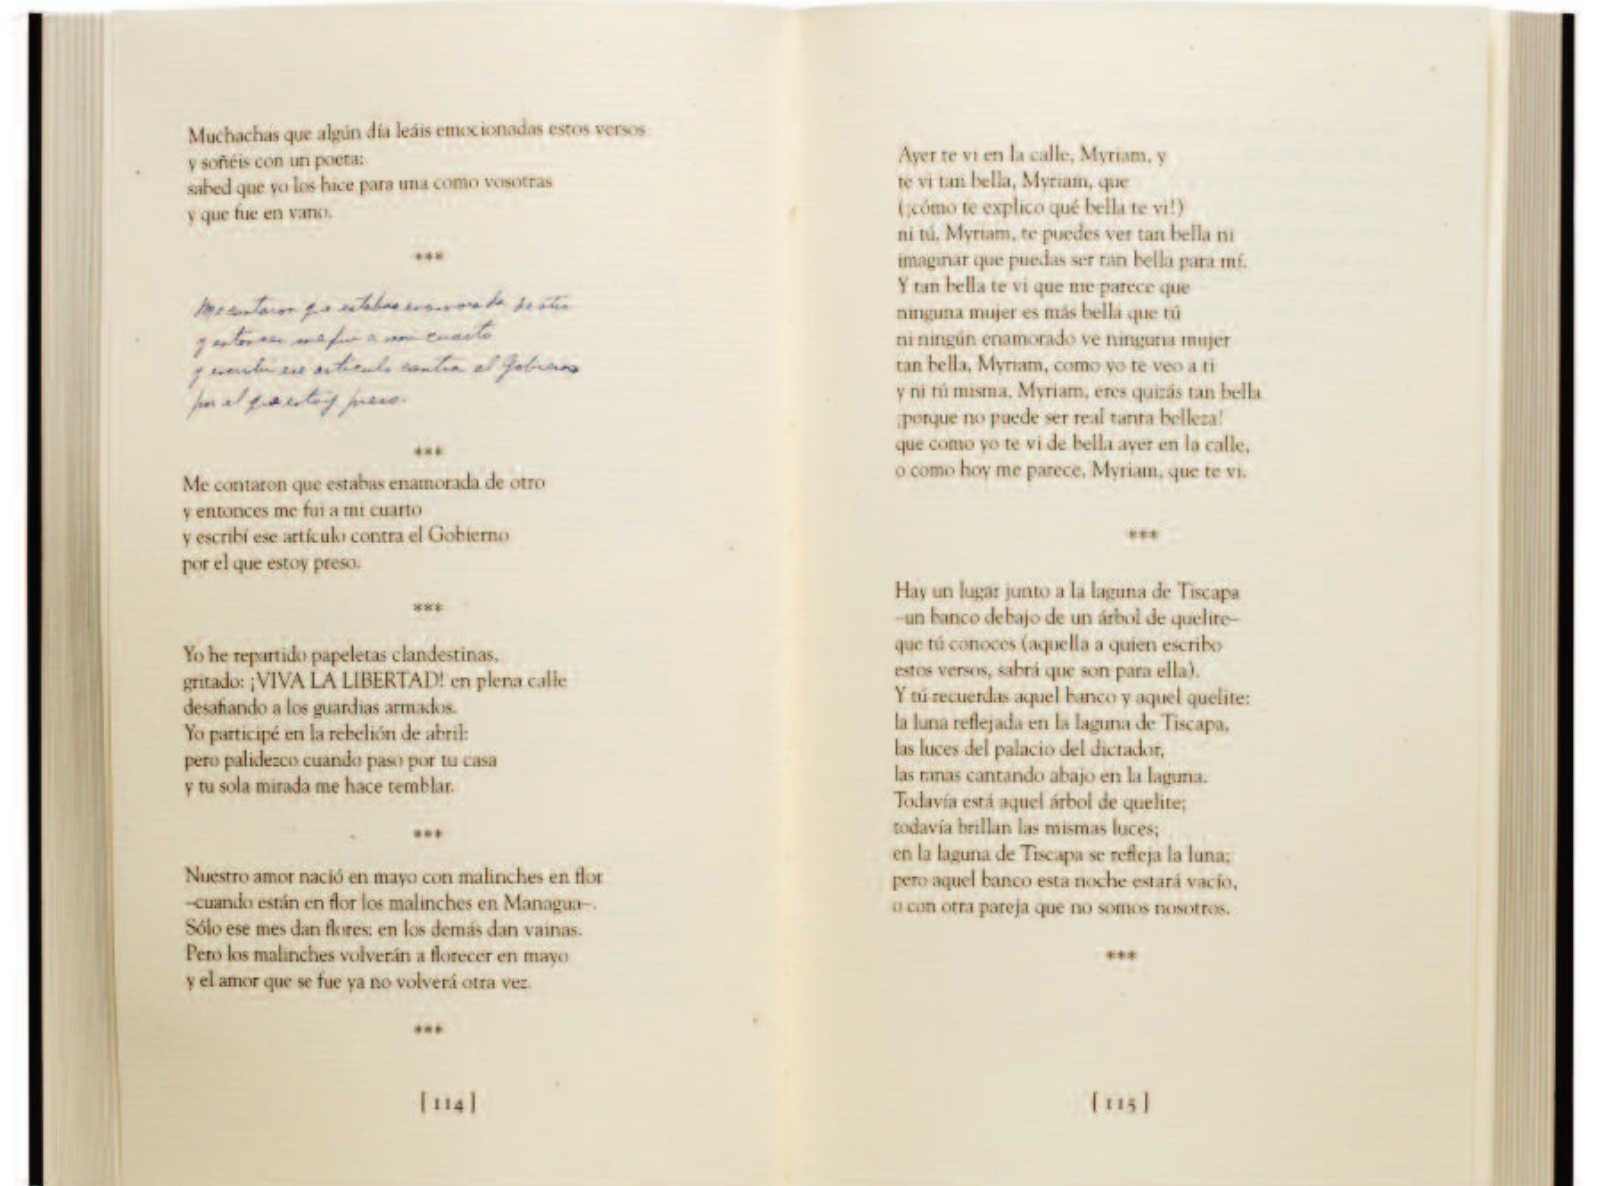 Muchachas que algún día leáis emocionadas estos versos
y soñéis con un poeta:
sabed que yo los hice para una como vosotras
y que fue en vano.
***
Me contaron que estabas enamorada de otro
y entonces me fui a mi cuarto
y escribí ese artículo contra el Gobierno
por el que estoy preso.
***
Me contaron que estabas enamorada de otro
y entonces me fui a mi cuarto
y escribí ese artículo contra el Gobierno
por el que estoy preso.
***
Yo he repartido papeletas clandestinas,
gritado: ¡VIVA LA LIBERTAD! en plena calle
desafiando a los guardias armados.
Yo participé en la rebelión de abril:
pero palidezco cuando paso por tu casa
y tu sola mirada me hace temblar.
***
Nuestro amor nació en mayo con malinches en flor
–cuando están en flor los malinches en Managua–.
Sólo ese mes dan flores: en los demás dan vainas.
Pero los malinches volverán a florecer en mayo
y el amor que se fue ya no volverá otra vez.
***
[ 114 ]
Ayer te vi en la calle, Myriam, y
te vi tan bella, Myriam, que
(¡cómo te explico qué bella te vi!)
ni tú, Myriam, te puedes ver tan bella ni
imaginar que puedas ser tan bella para mí.
Y tan bella te vi que me parece que
ninguna mujer es más bella que tú
ni ningún enamorado ve ninguna mujer
tan bella, Myriam, como yo te veo a ti
y ni tú misma, Myriam, eres quizás tan bella
¡porque no puede ser real tanta belleza!
que como yo te vi de bella ayer en la calle,
o como hoy me parece, Myriam, que te vi.
***
Hay un lugar junto a la laguna de Tiscapa
–un banco debajo de un árbol de quelite–
que tú conoces (aquella a quien escribo
estos versos, sabrá que son para ella).
Y tú recuerdas aquel banco y aquel quelite:
la luna reflejada en la laguna de Tiscapa,
las luces del palacio del dictador,
las ranas cantando abajo en la laguna.
Todavía está aquel árbol de quelite;
todavía brillan las mismas luces;
en la laguna de Tiscapa se refleja la luna;
pero aquel banco esta noche estará vacío,
o con otra pareja que no somos nosotros.
***
[ 115 ]